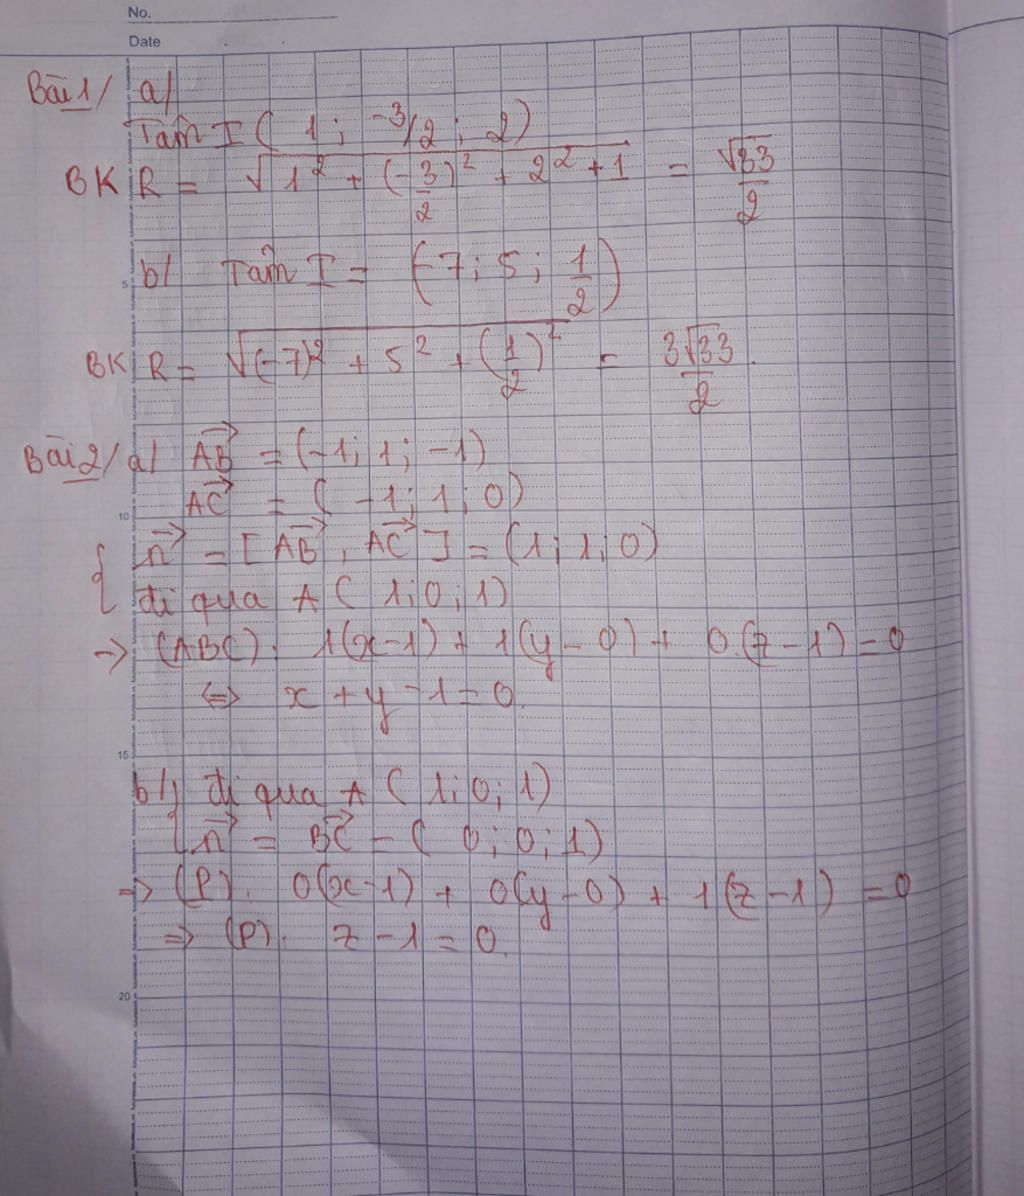 No.
Date
Bài 1/ a/
Tâm I ( 1 ; -3/2 ; 2 )
BK R = √(1² + (-3/2)² + 2² + 1) = √33/2
b/ Tâm I = (-7 ; 5 ; 1/2)
5
BK R = √((-7)² + 5² + (1/2)²) = 3√33/2.
Bài 2/ a/ AB→ = (-1; 1; -1)
AC→ = ( -1; 1; 0)
10
{ n→ = [ AB→ , AC→ ] = (1; 1; 0)
đi qua A ( 1; 0; 1)
→ (ABC): 1(x-1) + 1(y - 0) + 0.(z - 1) = 0
⇔ x + y - 1 = 0.
15
b/ { đi qua A ( 1; 0; 1)
n→ = BC→ = ( 0; 0; 1)
⇒ (P): 0(x-1) + 0(y-0) + 1(z-1) = 0
⇒ (P): z - 1 = 0.
20